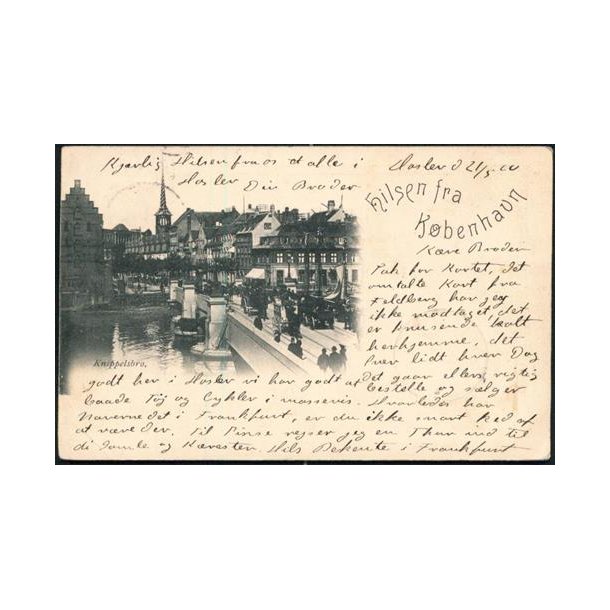 Kjærlig Hilsen fra os alle i
Haslev Din Broder
Haslev d 21/5 00
Hilsen fra
København
Kære Broder
Tak for Kortet, det
omtalte Kort fra
Feldberg har jeg
ikke modtaget, det
er knusende koldt
herhjemme, det
Sner lidt hver Dag
Knippelsbro.
det gaar ellers rigtig
godt her i Haslev vi har godt af
bestille og sælger
baade Tøj og Cykler i massevis. Hvorledes har
Naverne det i Frankfurt, er du ikke snart ked af
at være der. Til Pinse rejser jeg en Thur ind til
di Gamle og Kæresten. Hils Bekente i Frankfurt